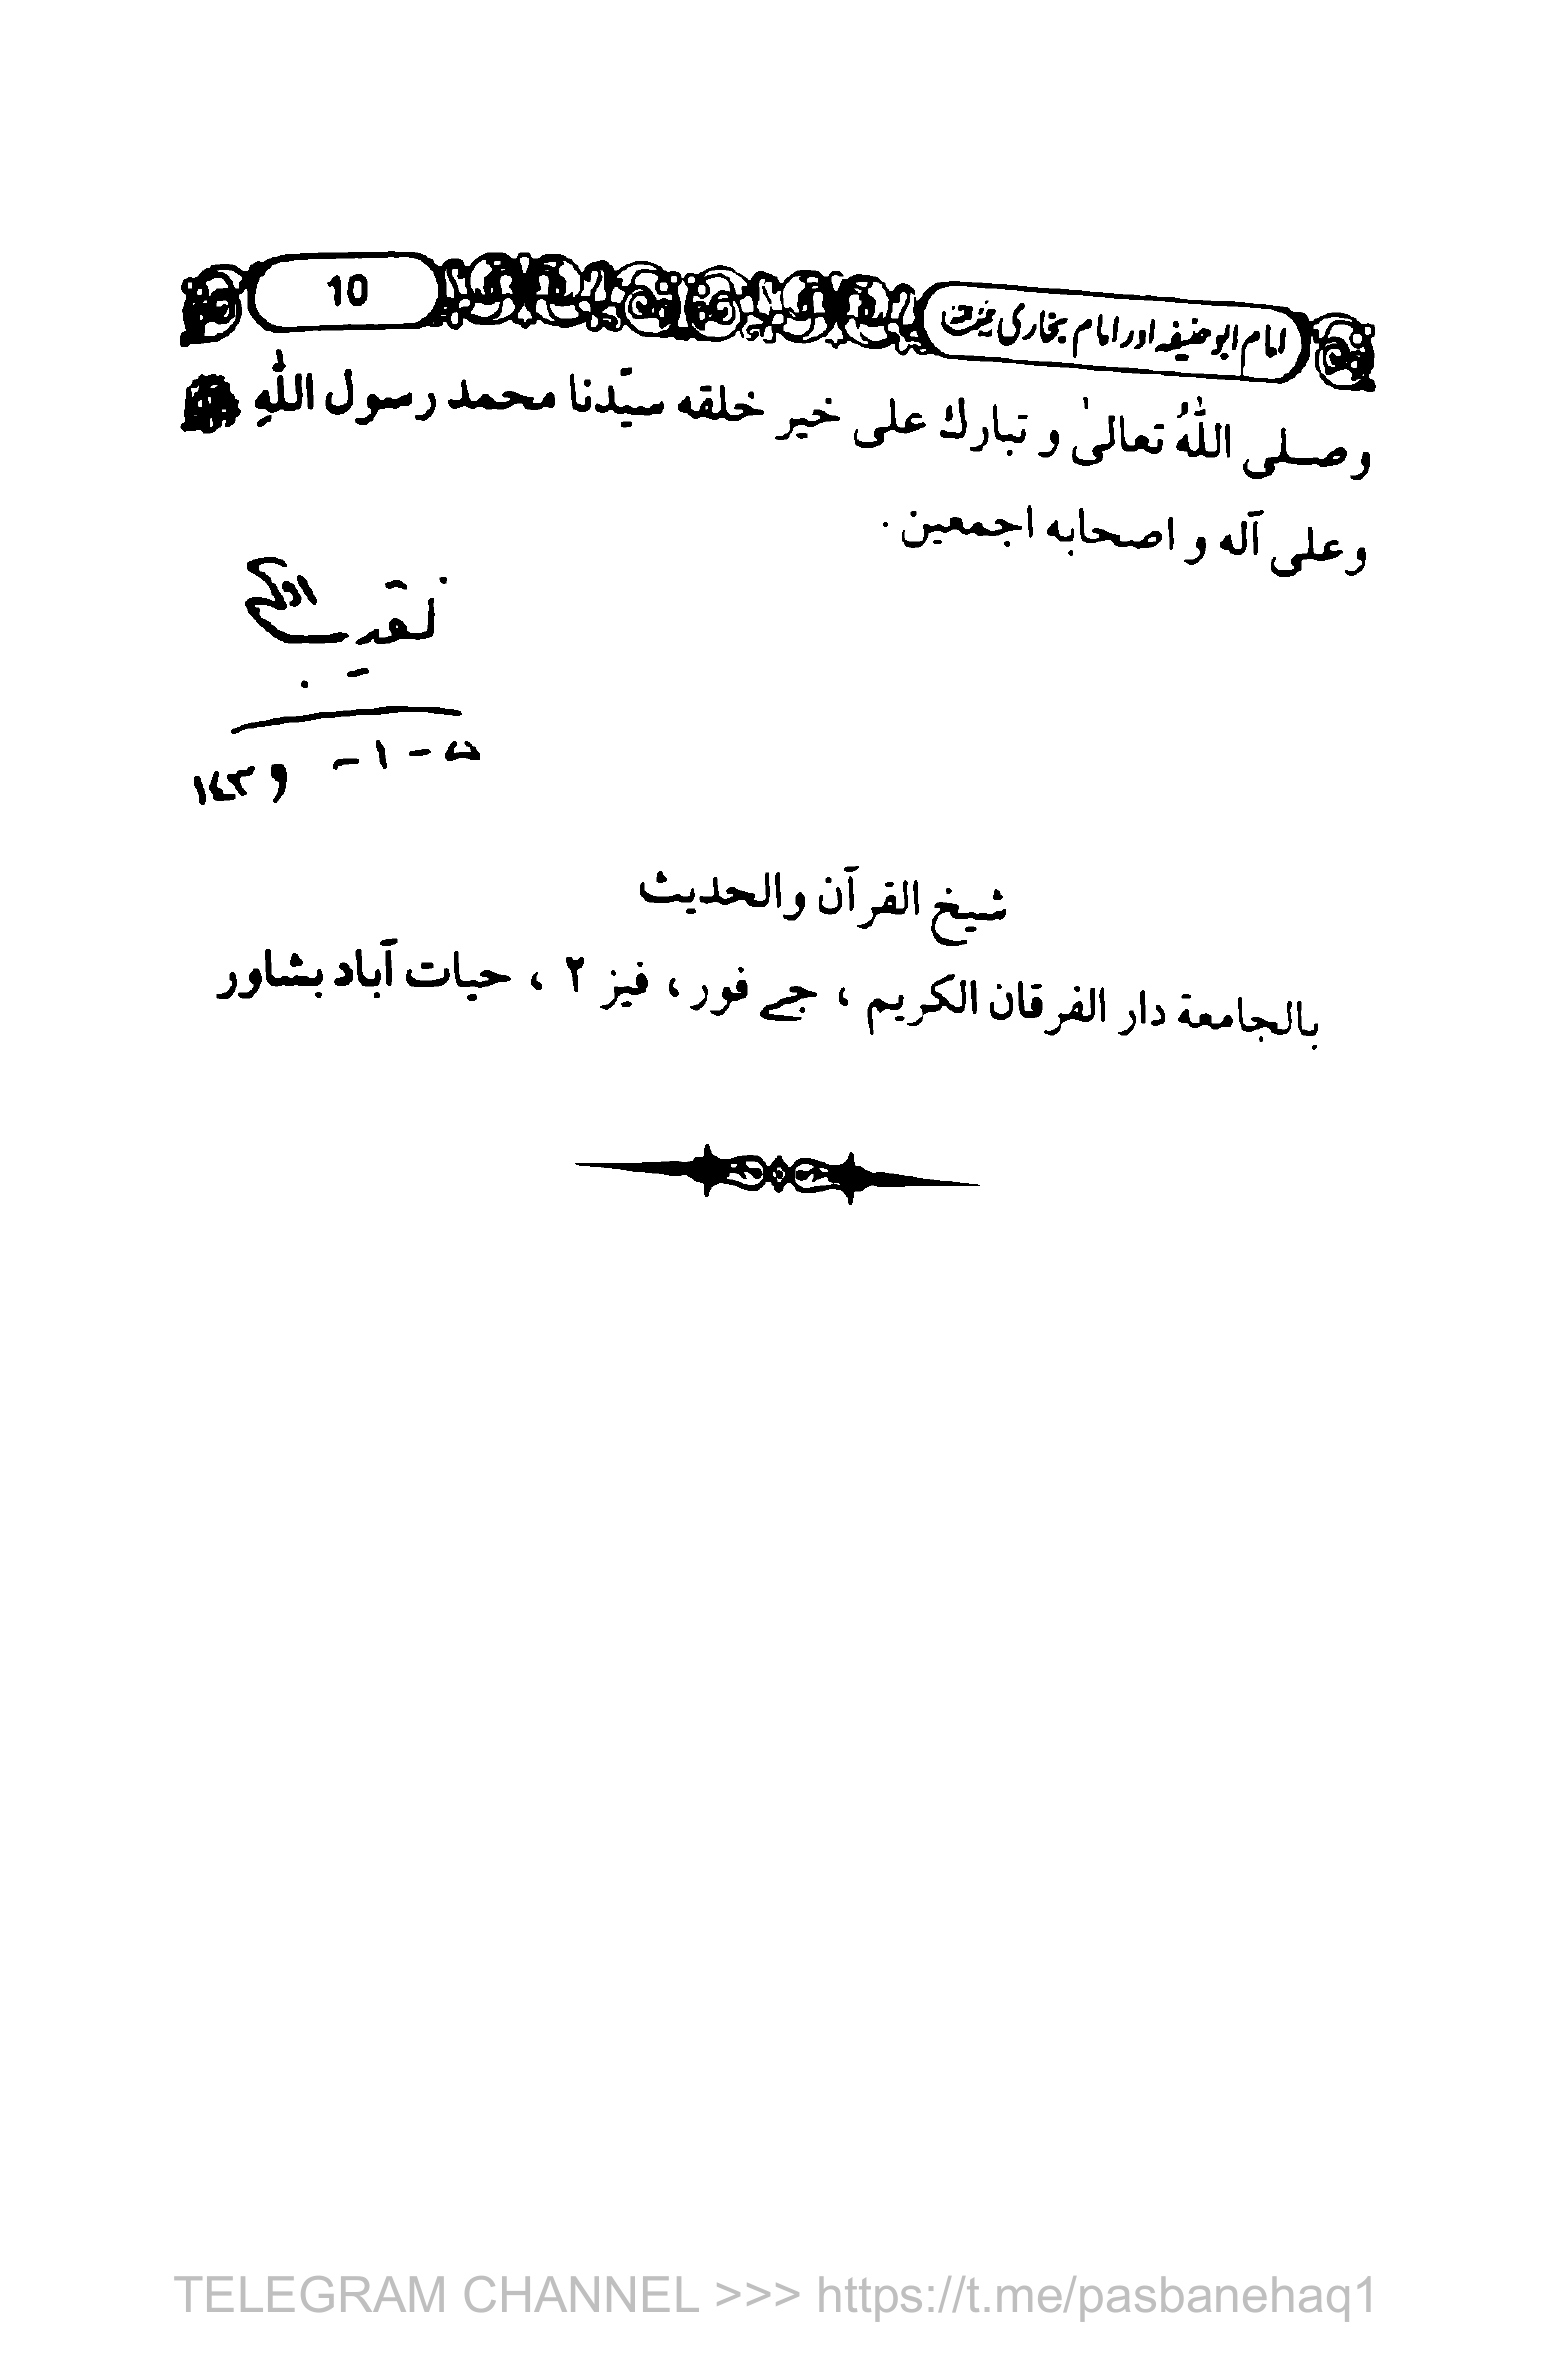 امام ابوحنیفہ اور امام بخاری
10
وصلى اللّٰهُ تعالىٰ و تبارك على خير خلقه سيّدنا محمد رسول اللّٰهِ ﷺ
وعلى آله و اصحابه اجمعين .
نقیب
شيخ القرآن والحديث
بالجامعة دار الفرقان الكريم ، جے فور ، فيز ٢ ، حيات آباد بشاور
TELEGRAM CHANNEL >>> https://t.me/pasbanehaq1